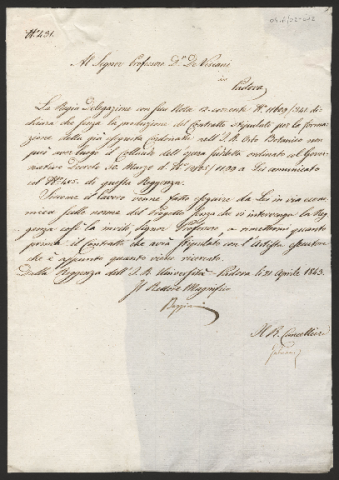 N° 431.
Al Signor Professore D.r De Visiani
in
Padova
La Regia Delegazione con sua Nota 12 corrente N° 11603/741 di-
chiara che senza la produzione del Contratto stipulato per la forma-
zione della più
nell' I. R. Orto Botanico non
può aver luogo il Collaudo dell' opera suddetta ordinato al Gover-
nativo Decreto 30 Marzo d. N° a Lei comunicato
col N° 405. di questa Reggenza.
lavoro venne fatto seguire da Lei in via eco-
nomica sulle norme del Progetto senza che vi intervenga la Reg-
genza così la invito Signor Professore, a rimettermi quanto
prima il Contratto che avrà stipulato con l'Artista esecutore
che è appunto quanto viene ricercato.
Dalla Reggenza dell' I. R. Università Padova li 21 Aprile 1843.
Il Rettore Magnifico
Il R. Cancelliere